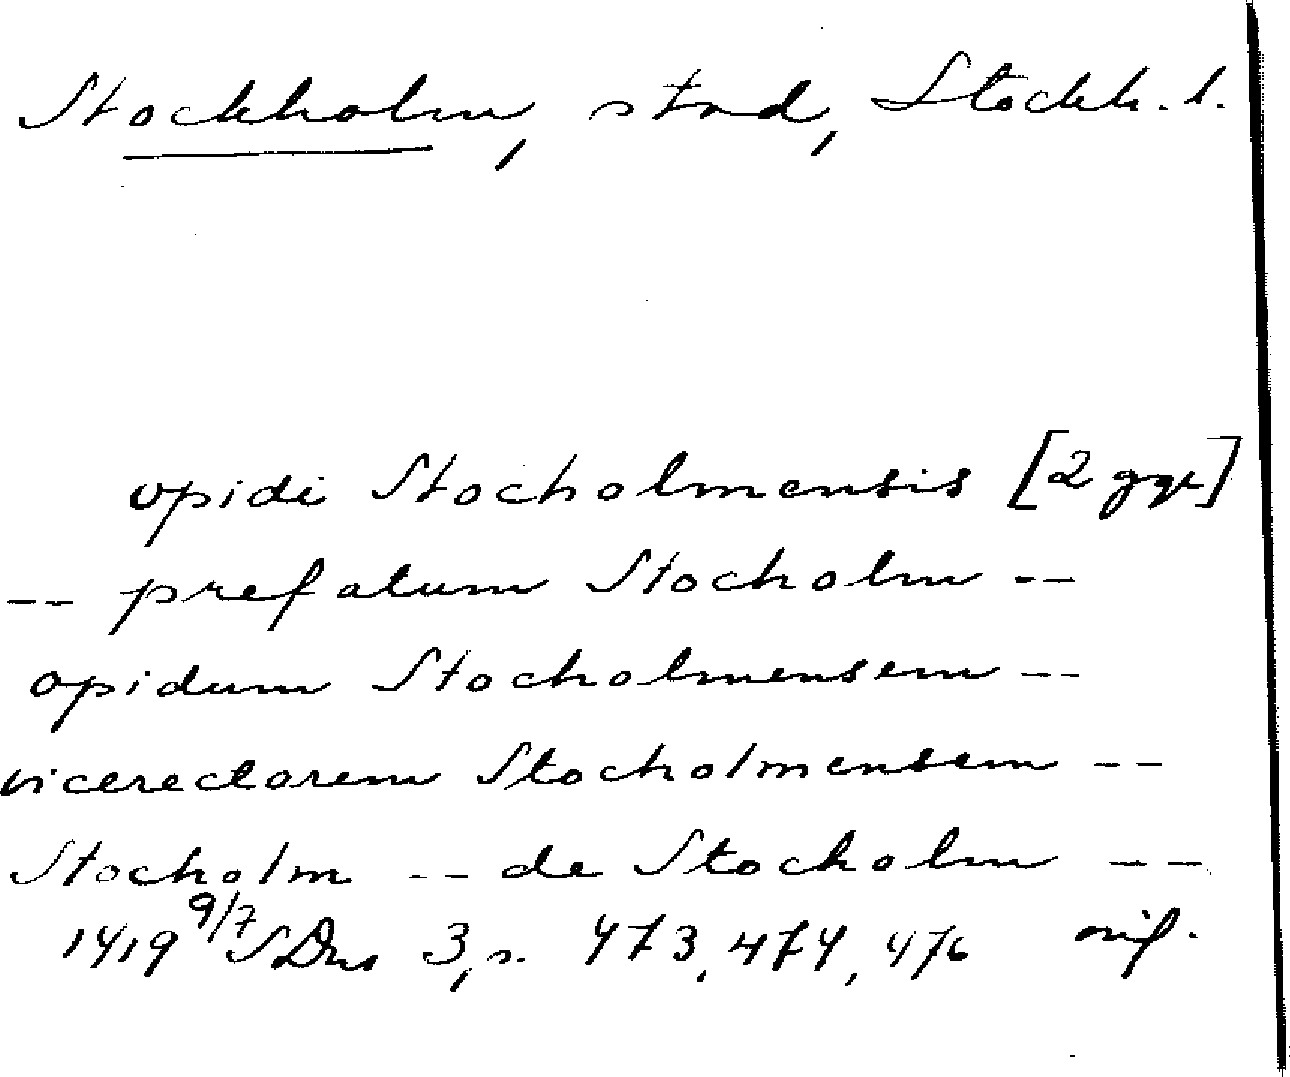 Stockholm, stad, Stockh. l.
opidi Stocholmensis [2 ggr]
-- prefatum Stocholm --
opidum Stocholmensem --
vicerectorem Stocholmensem --
Stocholm -- de Stocholm --
1419 9/7 SDns 3, s. 473, 474, 476 orig.